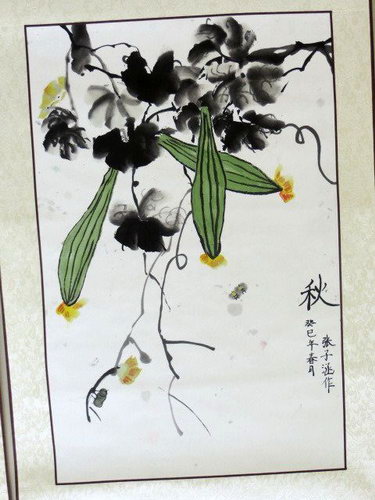 秋
癸巳年春月
张子涵作